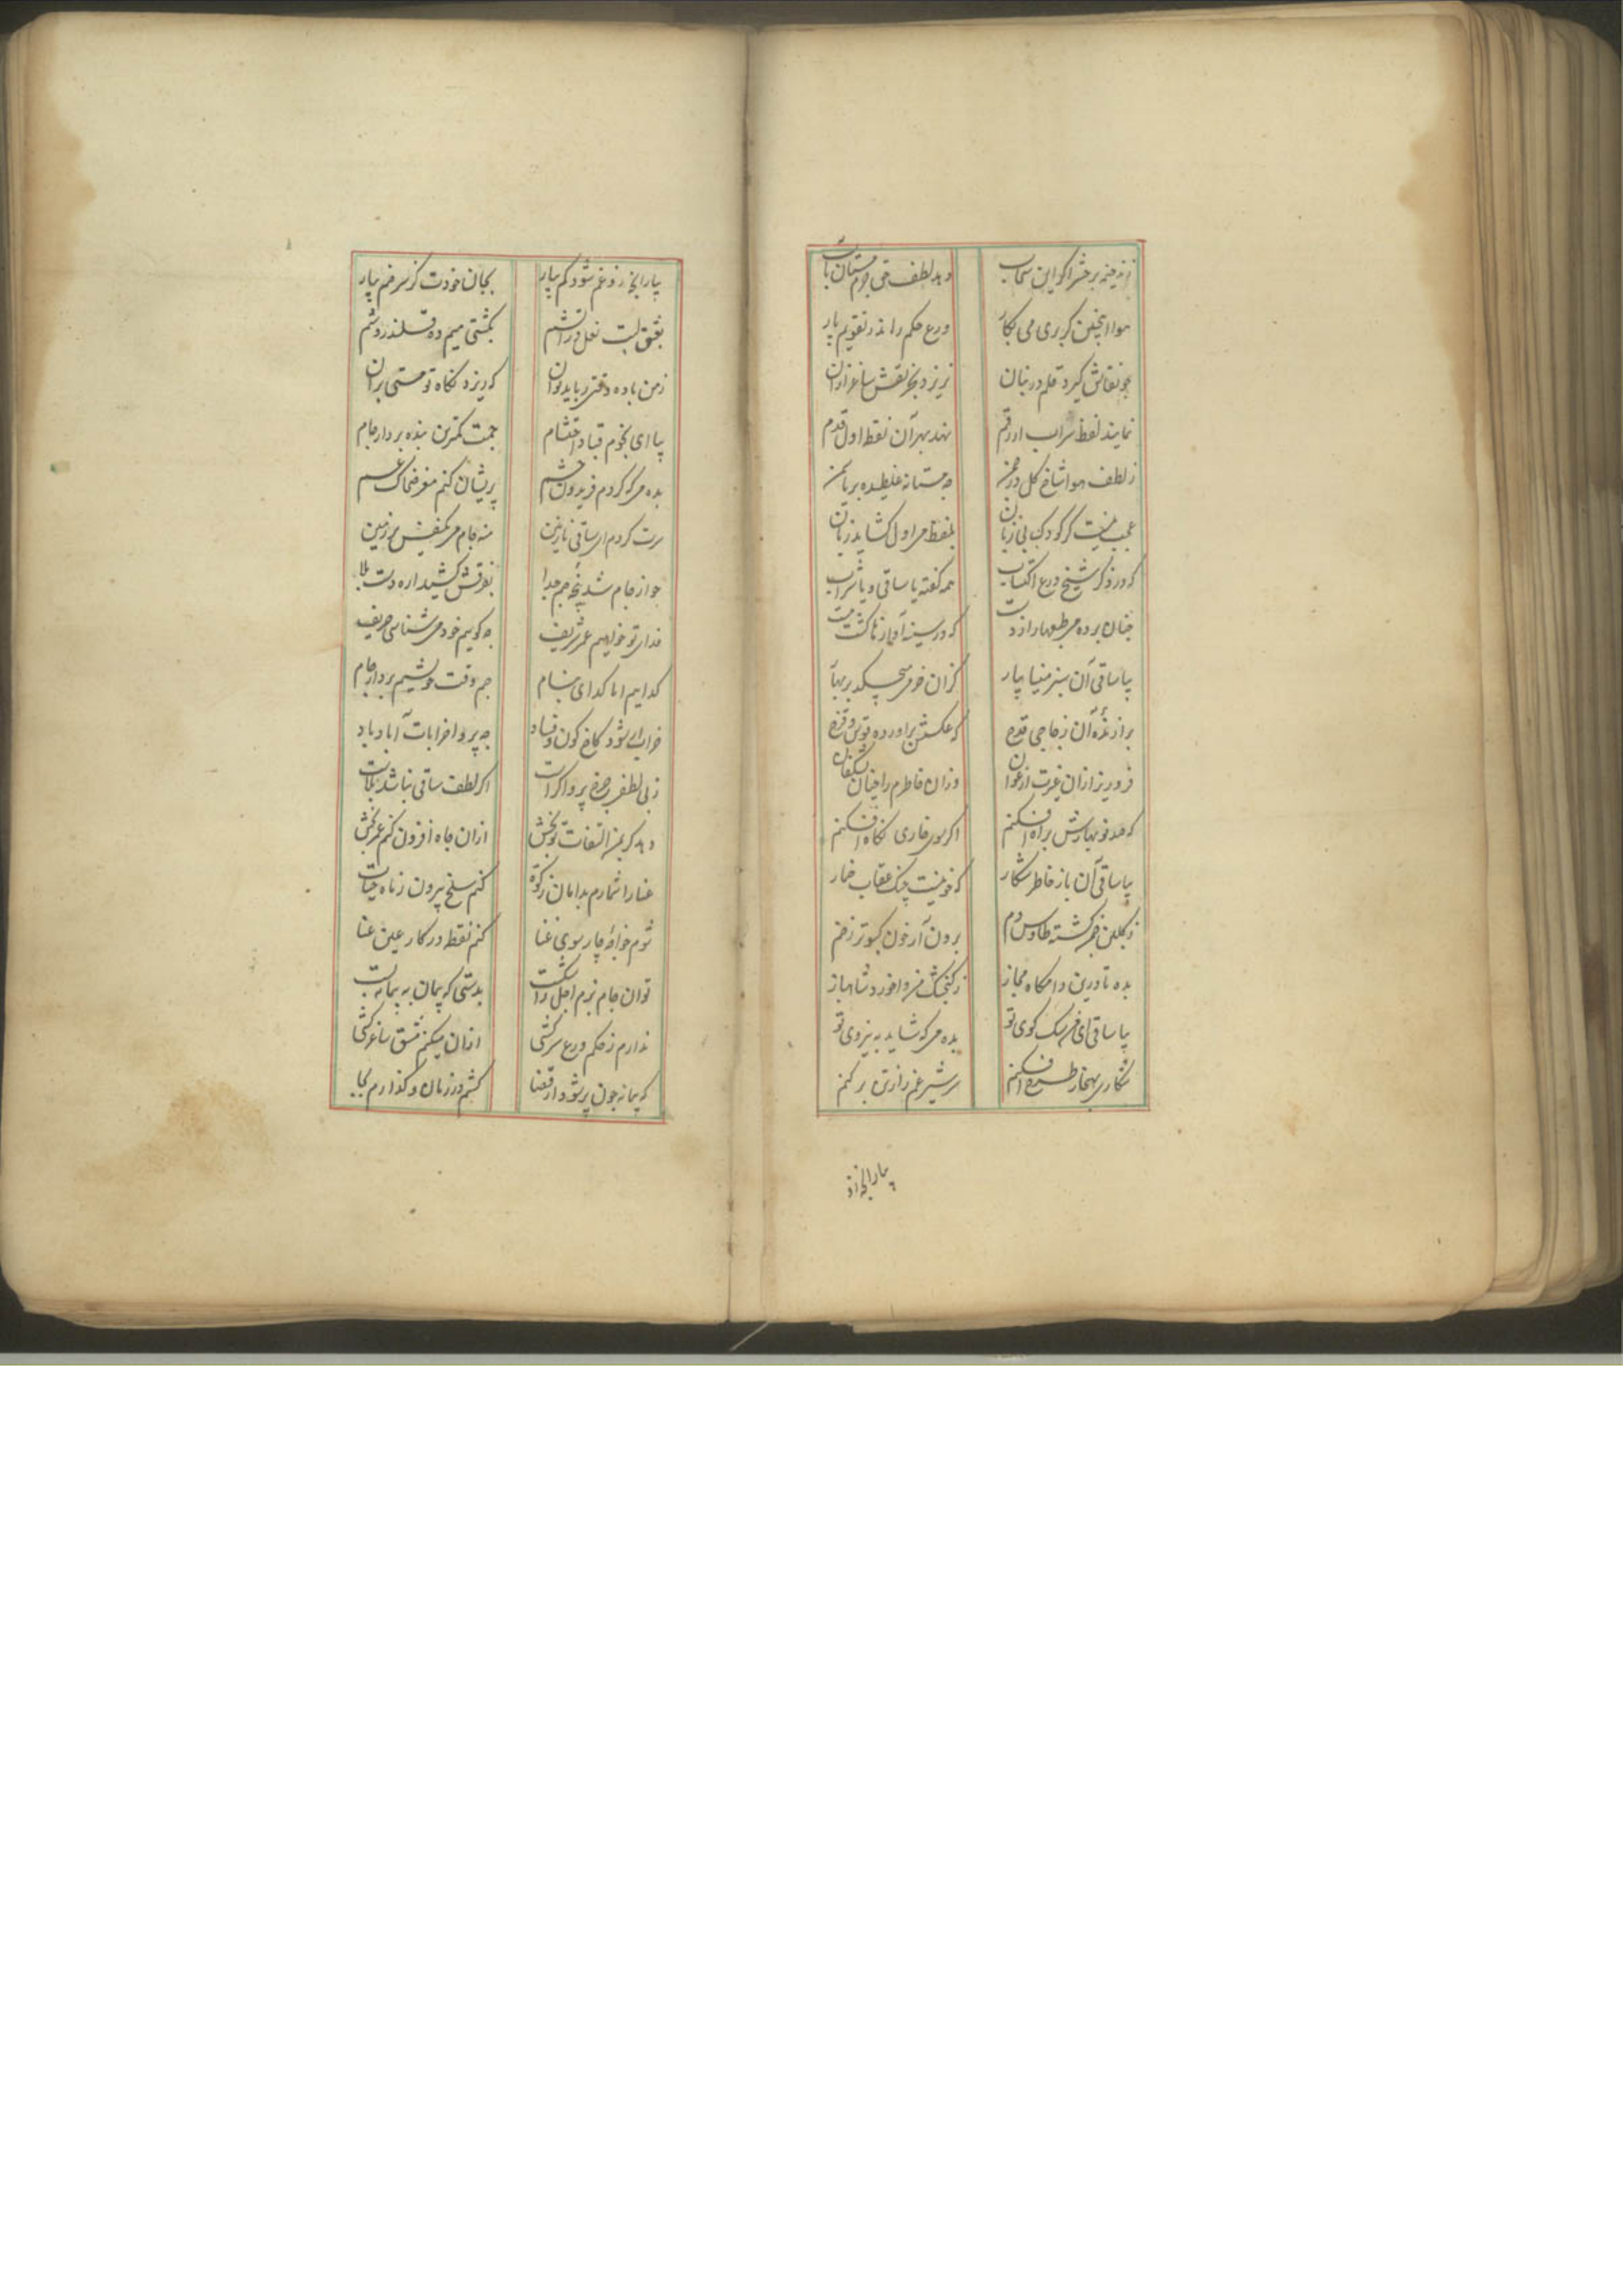 هوا اینچنین کر بری می بکار
ورع حکم راند ز تقویم پار
چو نقاش کیرد قلم در بنان
نریزد بجز نقش ساغر ازان
نماید لفظ شراب ار رقم
نهد بهر آن نقطه اول قدم
ز لطف هوا شاخ کل در چمن
چه مستانه غلطیده بر یاسمن
عجب نیست کر کودک بی زبان
بلفظ می اول کشاید زبان
که در ذکر شیخ ورع اکتساب
همه کفته یا ساقی و یا شراب
چنان برده می طبعها را ز دست
که در سینه آواز
بیا ساقی آن سبز مینا بیار
کزان خون می چکد بر بهار
برازنده آن زجاجی قدح
که عکسش براورده قوس و قزح
فرو ریز ازان غیرت ارغوان
وزان خاطرم را چنان بشکفان
که صد نوبهارش براه افکنم
اکر سوی خاری نکاه افکنم
بیا ساقی آن باز خاطر شکار
که خونیست چنک عقاب خمار
طاوس دم
برون آر خون کبوتر ز خم
بده تا درین دامکاه مجاز
ز کنجشک من وا خورد شاهباز
بیا ساقی ای من سک کوی تو
بده می که شاید به نیروی تو
شکاری بهنجار طرح افکنم
سر شیر غم را ز تن بر کنم
بیارا بخ از
بیارا بخ از و غم شود کم بیار
بجان خودت کز سر خم بیار
بعشق لبت نعل در آتشم
بکشتی میم ده قلندر وشم
ز من باده وقتی رباید توان
که ریزد نکاه تو مستی بران
بیا ای نجوم قباد احتشام
جمت کمترین بنده بردار جام
بده می که کردم فریدون حشم
پریشان کنم مغز ضحاک غم
سرت کردم ای ساقی نازنین
منه جام می یکنفس بر زمین
چو از جام شد پنجه جم جدا
بفرقش کشید اره دست بلا
فدای تو خواهیم عمر شریف
چه کویم خود می شناسی حریف
کدایم اما کدای
جم وقت خویشیم بردار جام
خراب ار شود کاخ کون و فساد
چه پروا خرابات آباد باد
ز بی لطفی چرخ پروا کراست
اکر لطف ساقی نباشد بلاست
دهد کر بمن التفات تو بخش
ازان جاه افزون کنم عمر بخش
غنا را شمارم بدامان زکوة
کنم سلخ بیرون ز ماه حیات
شوم خواجه چار سوی غنا
کنم نقطه در کار عین عنا
توان جام بزم اجل را شکست
بدستی که پیمان به پیمانه بست
ندارم ز حکم ورع سرکشی
ازان میکنم مشق ساغر کشی
که پیمانه چون پر شود از قضا
کشم در زمان و کذارم بجا